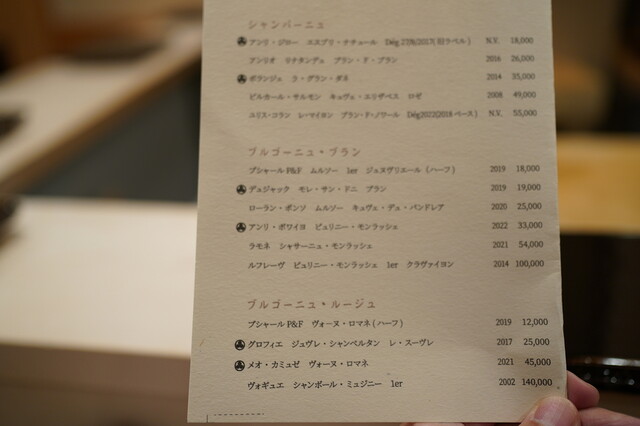 シャンパーニュ
アンリ・ジロー エスプリ・ナチュール Dég 27/9/2017(旧ラベル) N.V. 18,000
アンリオ リナタンデュ ブラン・ド・ブラン 2016 26,000
ボランジェ ラ・グラン・ダネ 2014 35,000
ビルカール・サルモン キュヴェ・エリザベス ロゼ 2008 49,000
ユリス・コラン レ・マイヨン ブラン・ド・ノワール Dég2022(2018ベース) N.V. 55,000
ブルゴーニュ・ブラン
ブシャールP&F ムルソー 1er ジュヌヴリエール (ハーフ) 2019 18,000
デュジャック モレ・サン・ドニ ブラン 2019 19,000
ローラン・ポンソ ムルソー キュヴェ・デュ・パンドレア 2020 25,000
アンリ・ボワイヨ ピュリニー・モンラッシェ 2022 33,000
ラモネ シャサーニュ・モンラッシェ 2021 54,000
ルフレーヴ ピュリニー・モンラッシェ 1er クラヴァイヨン 2014 100,000
ブルゴーニュ・ルージュ
ブシャールP&F ヴォーヌ・ロマネ(ハーフ) 2019 12,000
グロフィエ ジュヴレ・シャンベルタン レ・スーヴレ 2017 25,000
メオ・カミュゼ ヴォーヌ・ロマネ 2021 45,000
ヴォギュエ シャンボール・ミュジニー 1er 2002 140,000